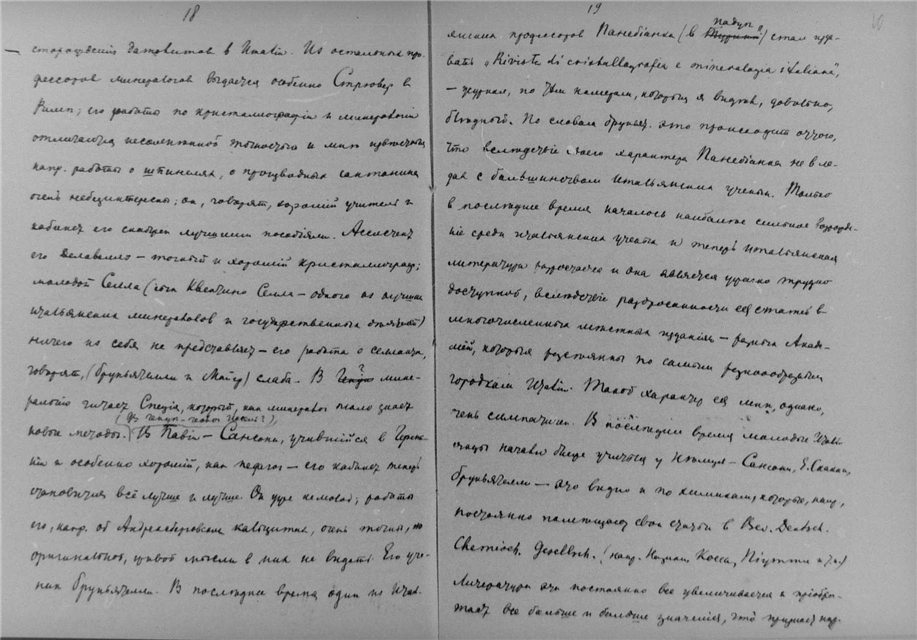 18
стороннiй Гатовитов в Италiи. Из остальных про-
фессоров минералогов выдается особенно Стрювер в
Риме; его работы по кристаллографiи и минералогiи
отличаются несомненной точностью и мн.
напр. работы о шпинелях, о производных сантонина
очень небезинтересны; он, говорят, хорошiй учитель и
кабинет его снабжен лучшими пособiями. Ассистент
его Делавалле — точный и хорошiй кристаллограф;
молодой Селла (сын Квентино Селла — одного из лучших
итальянских минералогов и государственных деятелей)
ничего из себя не представляет — его работа о селлаите,
говорят, (Брупьятелли и Майер) слаба. В Генуе? мине-
ралогiю читает Специя, который, как минералог мало знает
новые методы. (Из Генуи — Исселя?),
Из Павiи — Сансони, учившiйся в Герма-
нiи и особенно хорошiй, как педагог — его кабинет теперь
становится всё лучше и лучше. Он уже немолод; работы
его, напр. об Андреасбергском кальците, очень точны, но
оригинальной, живой мысли в них не видать. Его уче-
ник Брупьятелли. В последнее время один из Итал.
19
янских профессоров Панебiанко (в Падуе?) стал изда-
вать „Rivista di cristallografia e mineralogia italiana",
— журнал, по тем номерам, которые я видел, довольно,
бледный. По словам Брупьят. это происходит оттого,
что вследствiе своего характера Панебiанко не в ла-
дах с большинством итальянских ученых. Только
в последнее время началось наиболее сильное возрожде-
нiе среди итальянских ученых и теперь итальянская
литература разростается и она является ужасно трудно
доступной, вследствiе разбросанности ея статей в
многочисленных местных изданiях — разных Акаде-
мiй, которыя разсеянны по самым разнообразным
городкам Италiи. Такой характер ея мне, однако,
очень симпатичен. В последнее время молодые Италь-
янцы начали больше учиться у Немцев — Сансони, Е. Скакки,
Брупьятелли — это видно и по химикам, которые, напр.,
постоянно помещают свои статьи в Ber. Deutsch.
Chemisch. Gesellsch. (напр. Назини, Косса, Пiутти и т.д.)
Литература эта постоянно все увеличивается и прiобре-
тает все больше и больше значенiя, что придает